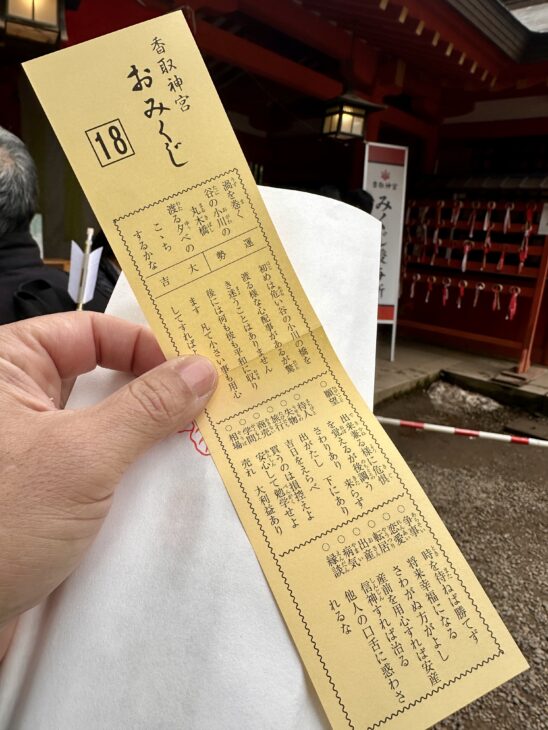 香取神宮
おみくじ
18
渦を巻く
谷の小川の
丸木橋
渡る夕べの
こゝち
するかな
運勢
大吉
初めは危い谷の小川の橋を
渡る様な心配事があるが驚
き迷うことはありません
後には何も彼も平和に収り
ます 凡て小さい事も用心
してすれば
○願望 出来兼る様に危惧
を覚えるが後調う
○待人 さわりあり 来らず
○失物 出がたし 下にあり
○旅行 吉日をえらべ
○商売 買うのは損控えよ
○学問 安心して勉学せよ
○相場 売れ 大利益あり
○争事 時を待ねば勝てず
○恋愛 将来幸福になる
○転居 さわがぬ方がよし
○出産 産前を用心すれば安産
○病気 信神すれば治る
○縁談 他人の口舌に惑わさ
れるな
香取神宮